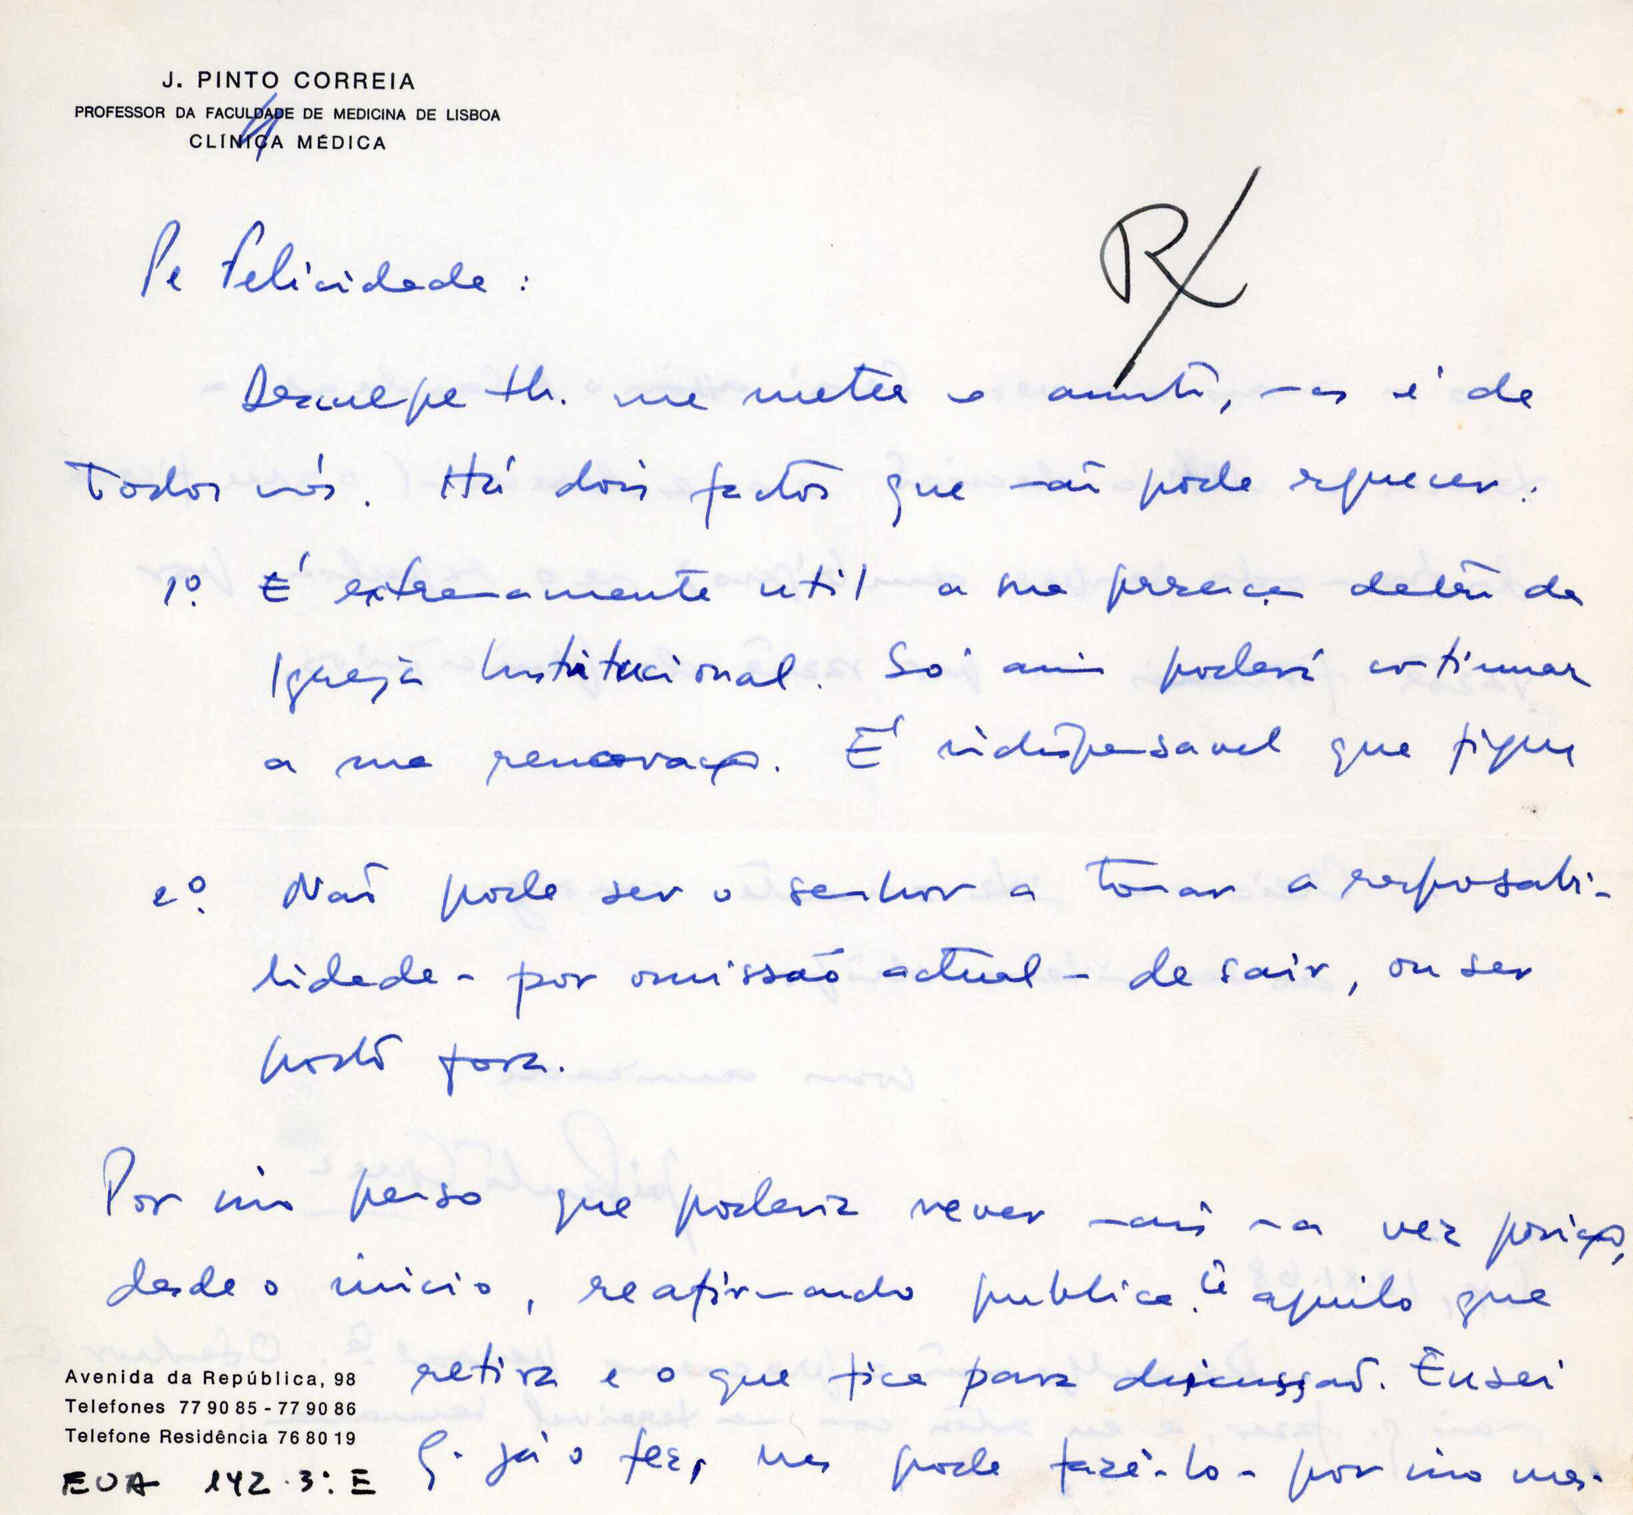 J. PINTO CORREIA
PROFESSOR DA FACULDADE DE MEDICINA DE LISBOA
CLÍNICA MÉDICA
R/
Pe Felicidade:
Desculpe me meter o, mas é de
Todos nós. Há dois factos que não pode esquecer:
1º. É extremamente util a sua presença dentro da
Igreja Institucional. Só assim poderá continuar
a sua renovação. É indispensavel que fique
2º. Não pode ser o senhor a tomar a responsabi-
lidade - por omissão actual - de sair, ou ser
posto fora.
Por isso penso que poderia rever mais uma vez posição,
desde o inicio, reafirmando publica.te aquilo que
retira e o que fica para discussão. Eu sei
q. já o fez, mas pode fazê-lo - por isso mes-
Avenida da República, 98
Telefones 77 90 85 - 77 90 86
Telefone Residência 76 80 19
EUA 142.3:E